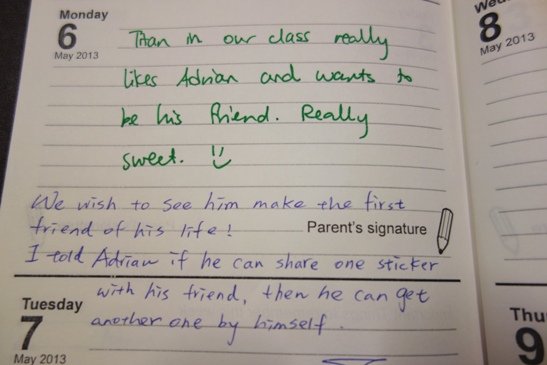 Monday
6
May 2013
Titan in our class really
likes Adrian and wants to
be his friend. Really
sweet.
We wish to see him make the first
friend of his life!
Parent's signature
I told Adrian if he can share one sticker
with his friend, then he can get
another one by himself.
Tuesday
7
May 2013
8
May 2013
Thu
9